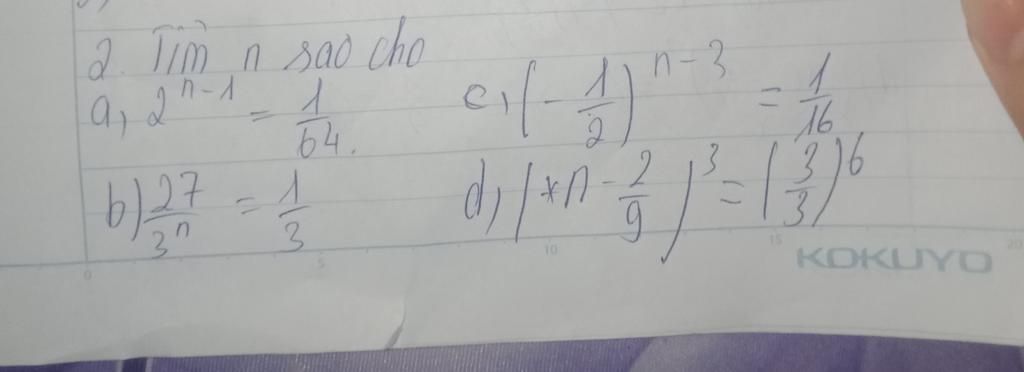 2. Tìm n sao cho
a, 2^{n-1} = 1/64.
c, (-1/2)^{n-3} = 1/16
b) 27/3^n = 1/3
d, (*n - 2/9)^3 = (3/3)^6
0 5 10 15 20
KOKUYO